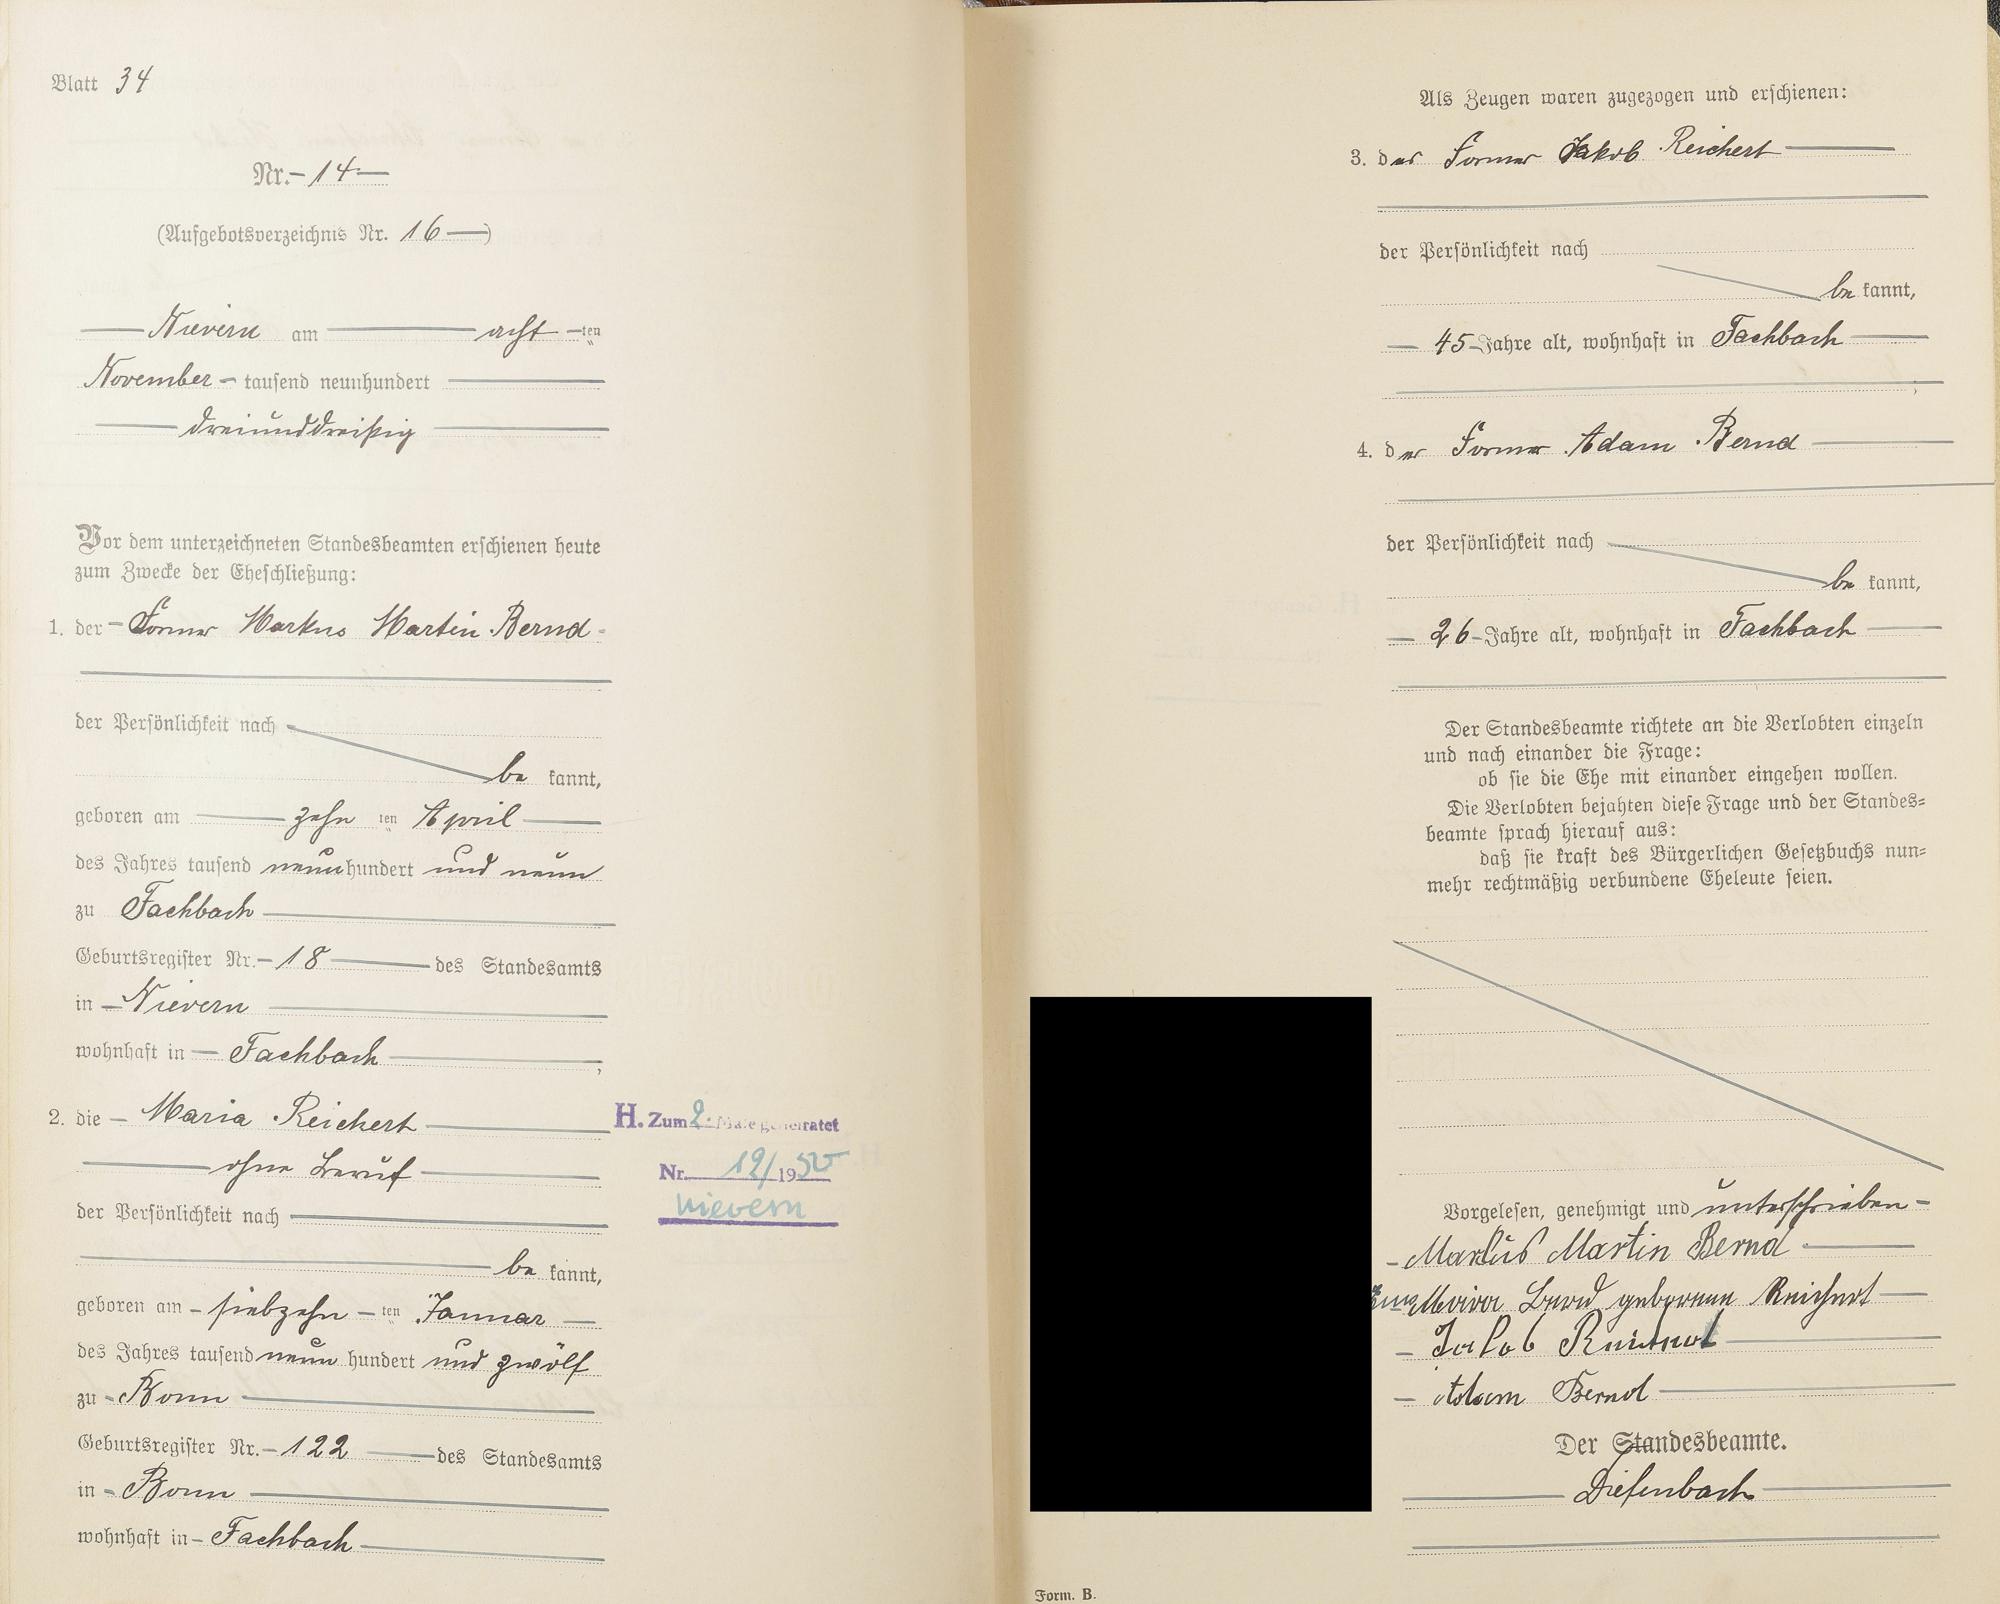 Blatt 34
Nr. 14
(Aufgebotsverzeichnis Nr. 16)
Nievern am acht ten
November tausend neunhundert
dreiunddreißig
Vor dem unterzeichneten Standesbeamten erschienen heute
zum Zwecke der Eheschließung:
1. der Former Markus Martin Bernd
der Persönlichkeit nach
be kannt,
geboren am zehn ten April
des Jahres tausend neunhundert und neun
zu Fachbach
Geburtsregister Nr. 18 des Standesamts
in Nievern
wohnhaft in Fachbach,
2. die Maria Reichert
ohne Beruf
der Persönlichkeit nach
be kannt,
geboren am siebzehn ten Januar
des Jahres tausend neun hundert und zwölf
zu Bonn
Geburtsregister Nr. 122 des Standesamts
in Bonn
wohnhaft in Fachbach
H. Zum 2. Male geheiratet
Nr. 12/1950
Nievern
Als Zeugen waren zugezogen und erschienen:
3. der Former Jakob Reichert
der Persönlichkeit nach
be kannt,
45 Jahre alt, wohnhaft in Fachbach
;
4. der Former Adam Bernd
der Persönlichkeit nach
be kannt,
26 Jahre alt, wohnhaft in Fachbach
Der Standesbeamte richtete an die Verlobten einzeln
und nach einander die Frage:
ob sie die Ehe mit einander eingehen wollen.
Die Verlobten bejahten diese Frage und der Standes=
beamte sprach hierauf aus:
daß sie kraft des Bürgerlichen Gesetzbuchs nun=
mehr rechtmäßig verbundene Eheleute seien.
Vorgelesen, genehmigt und unterschrieben
Markus Martin Bernd
Maria Bernd geborene Reichert
Jakob Reichert
Adam Bernd
Der Standesbeamte.
Diefenbach
Form. B.